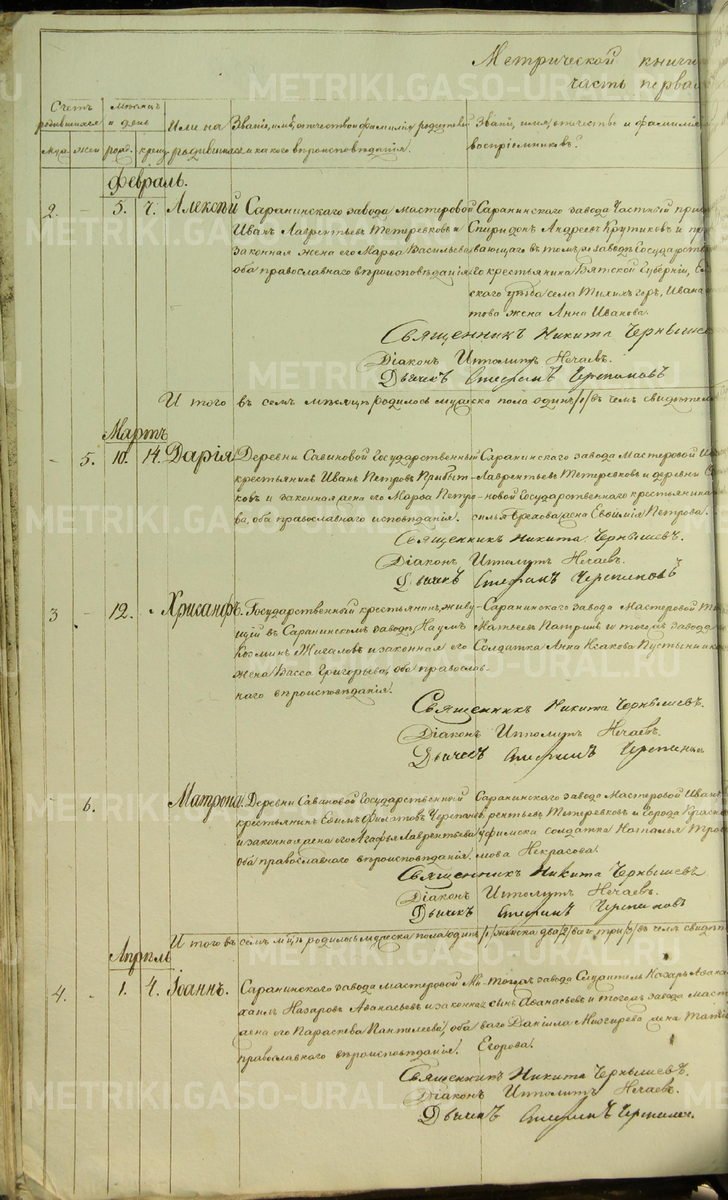 Метрической книги
часть первая
Счетъ родившихся
Муж. жен
Мѣсяцъ и день
рожд. крещ.
Имена родившихся
Званіе, имя, отчество и фамилія родителей
и какого вѣроисповѣданія.
Званіе, имя, отчество и фамилія
воспріемниковъ.
Февраль.
2. - 5. 7. Алексѣй
Саранинскаго завода Мастеровой
Иванъ Лаврентьевъ Тетеревковъ и
законная жена его Марѳа Васильева
оба православнаго вѣроисповѣданія
Саранинскаго завода Частный
Спиридонъ Андреевъ Крупиковъ и
вающаго въ томъ заводѣ Государств
го крестьянина Вятской Губерніи,
скаго уѣзда села Ивана
това жена Анна Иванова.
Священникъ Никита Чернышев
Діаконъ Ипполитъ Нечаевъ.
Дьячекъ Стефанъ Черепановъ
И того въ семъ мѣсяцѣ родилось мужеска пола одинъ /1/ въ чемъ свидѣтел
Мартъ
- 5. 10. 14. Дарія
Деревни Савиновой Государственный
крестьянинъ Иванъ Петровъ Прибыт-
ковъ и законная жена его Марѳа Петро-
ва, оба православнаго исповѣданія.
Саранинскаго завода Мастеровой
Лаврентьевъ Тетеревковъ и деревни
новой Государственнаго крестьянина
жена Евфимія Петрова.
Священникъ Никита Чернышевъ.
Діаконъ Ипполитъ Нечаевъ.
Дьячекъ Стефанъ Черепановъ
3 - 12. Хрисанфъ.
Государственный крестьянинъ, живу-
щій въ Саранинскомъ заводѣ Наумъ
Косминъ Жигаловъ и законная его
жена Васса Григорьева, оба православ-
наго вѣроисповѣданія.
Саранинскаго завода Мастеровой
Матвеевъ и тогожъ завода
Солдатка Анна Исакова
Священникъ Никита Чернышевъ.
Діаконъ Ипполитъ Нечаевъ.
Дьячекъ Стефанъ Черепановъ
- 6. Матрона.
Деревни Савиновой Государственной
крестьянинъ Ефимъ Филатовъ Черепановъ
и законная жена его Агафья Лаврентьева
оба православнаго вѣроисповѣданія.
Саранинскаго завода Мастеровой Иванъ
рентьевъ Тетеревковъ и города Красно
уфимска солдатка Наталья
мова Некрасова.
Священникъ Никита Чернышевъ
Діаконъ Ипполитъ Нечаевъ.
Дьячекъ Стефанъ Черепановъ
И того въ семъ м-цѣ родилось мужеска пола одинъ /1/ женска два /2/ всего три /3/ въ чемъ свидѣт
Апрѣль
4. - 1. 4. Іоаннъ.
Саранинскаго завода мастеровой Ми-
хаилъ Назаровъ Аѳанасьевъ и законная
жена его Параскева Пантелеева, оба
православнаго вѣроисповѣданія.
тогожъ завода Служитель Назаръ
сынъ Аѳанасьевъ и тогожъ завода маст
ваго Даніила жена
Егорова.
Священникъ Никита Чернышевъ.
Діаконъ Ипполитъ Нечаевъ.
Дьячекъ Стефанъ Черепанов
METRIKI.GASO-URAL.RU